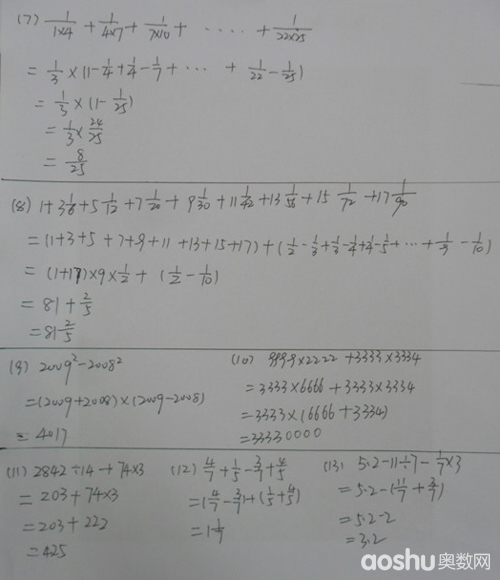 (7) 1/1×4 + 1/4×7 + 1/7×10 + ‥‥ + 1/22×25
= 1/3 ×(1-1/4+1/4-1/7+ ‥‥ + 1/22 - 1/25)
= 1/3 × (1- 1/25)
= 1/3 × 24/25
= 8/25
(8) 1+3 1/6+5 1/12+7 1/20+ 9 1/30 +11 1/42 +13 1/56 +15 1/72 +17 1/90
=(1+3+5 +7+9+11 +13+15+17)+(1/2-1/3+1/3-1/4+1/4-1/5+ ⋯ + 1/9 - 1/10)
= (1+17)×9×1/2 + (1/2 - 1/10)
= 81 + 2/5
= 81 2/5
(9) 2009²-2008²
=(2009+2008)×(2009-2008)
= 4017
(10) 9999×2222 +3333×3334
=3333×6666 +3333×3334
=3333×(6666 +3334)
=33330000
(11) 2842÷14 + 74×3
= 203 + 74×3
=203+ 222
=425
(12) 4/7 + 1/5 - 3/7 + 4/5
= (4/7 - 3/7)+(1/5+4/5)
= 1 1/7
(13) 5.2-11÷7 - 1/7×3
= 5.2-(11/7 + 3/7)
=5.2-2
=3.2
aoshu奥数网